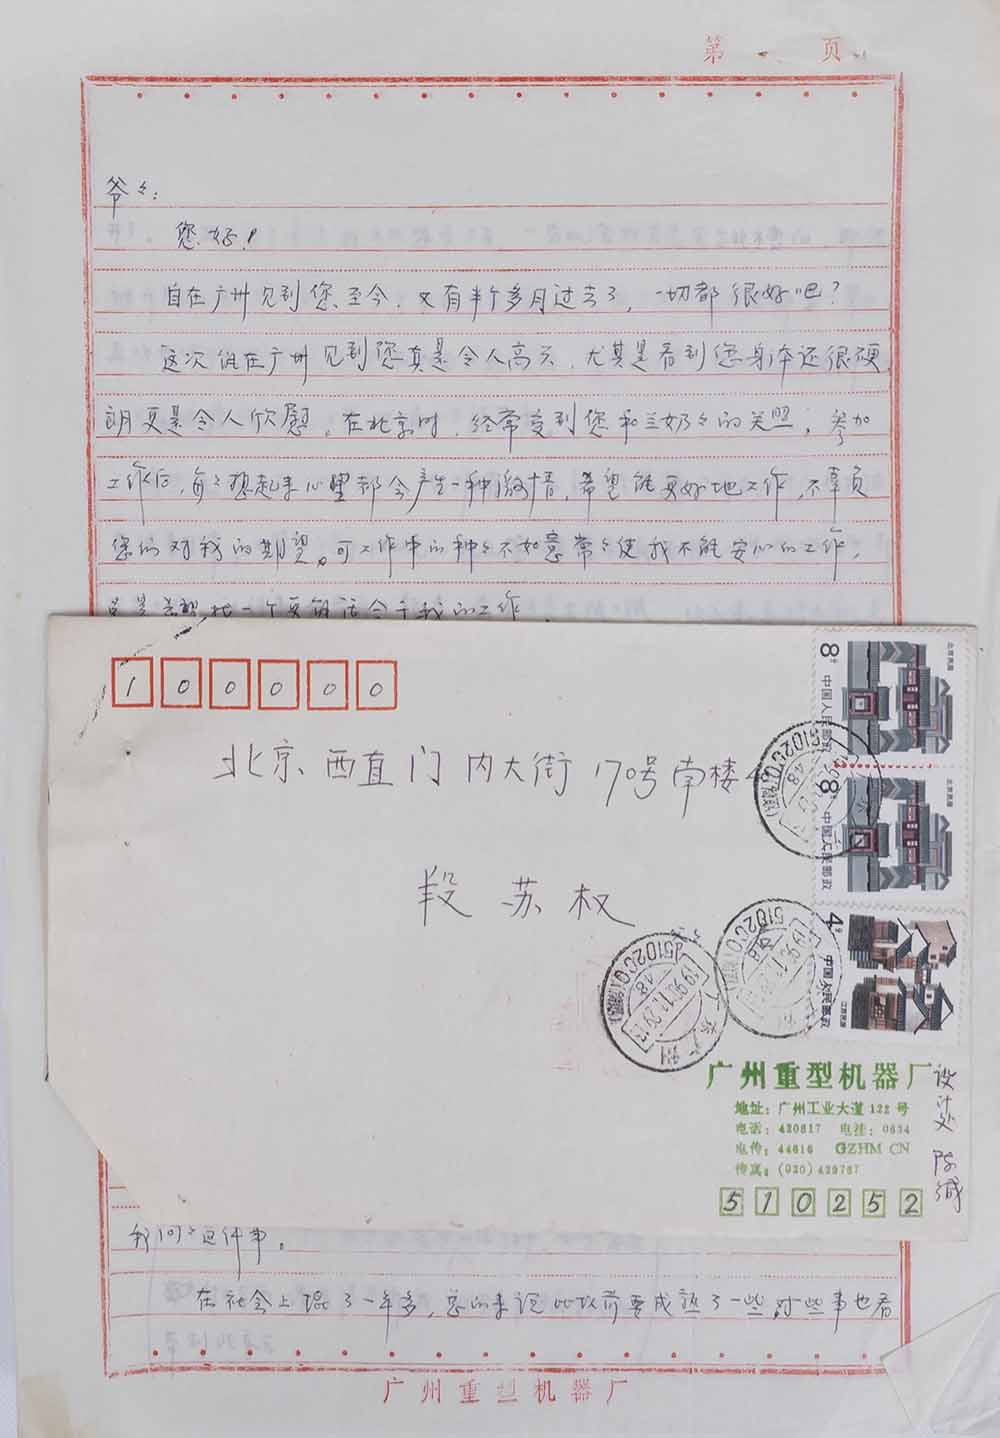 第 页
爷々：
您好！
自在广州见到您至今，又有半个多月过去了，一切都很好吧？
这次能在广州见到您真是令人高兴，尤其是看到您身体还很硬
朗更是令人欣慰。在北京时，经常受到您和兰奶々的关照，参加
工作后，每々想起来心里都会产生一种激情，希望能更好地工作，不辜负
您们对我的期望。可工作中的种々不如意常々使我不能安心的工作，
找一个更能适合于我的工作，
100000
北京西直门内大街170号南楼
段苏权
8分
中国人民邮政
北京民居
8分
中国人民邮政
北京民居
4分
中国人民邮政
江苏民居
广州重型机器厂
设计处 陈
地址：广州工业大道122号
电话：420817 电挂：0634
电传：44616 GZHM CN
传真：(020)429767
510252
我问々这件事。
在社会上混了一年多，总的来说比以前要成熟了一些，对些事也看
广州重型机器厂